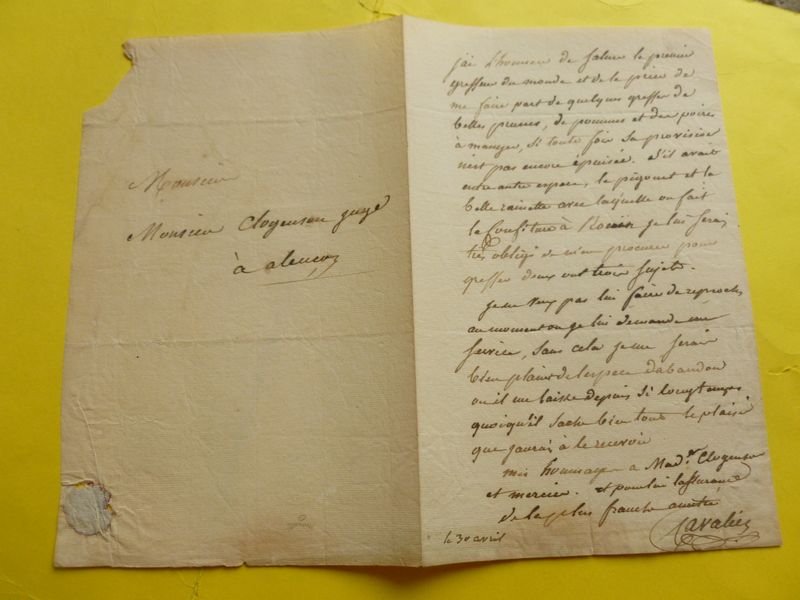 Monsieur
Monsieur Clogenson juge
à alençon
j'ai l'honneur de saluer le premier
greffeur du monde et de le prier de
me faire part de quelques greffes de
belles prunes, de pommes et de poires
à manger, si toute fois sa provision
n'est pas encore épuisée. S'il avait
entre autre espece, le pigonet et la
belle rainette avec laquelle on fait
la confiture à Rouen je lui serai
très obligé de m'en procurer pour
greffer deux out trois sujets.
je ne veux pas lui faire de reproches
au moment ou je lui demande un
service, sans cela je me serais
bien plaint de l'espece d'abandon
ou il me laisse depuis si longtemps
quoiqu'il sache bien tout le plaisir
que j'aurai à le recevoir
mes hommages a Mad.e Clogenson
et mercier. et pour lui l'assurance
de la plus franche amitié
Cavalier
le 30 avril